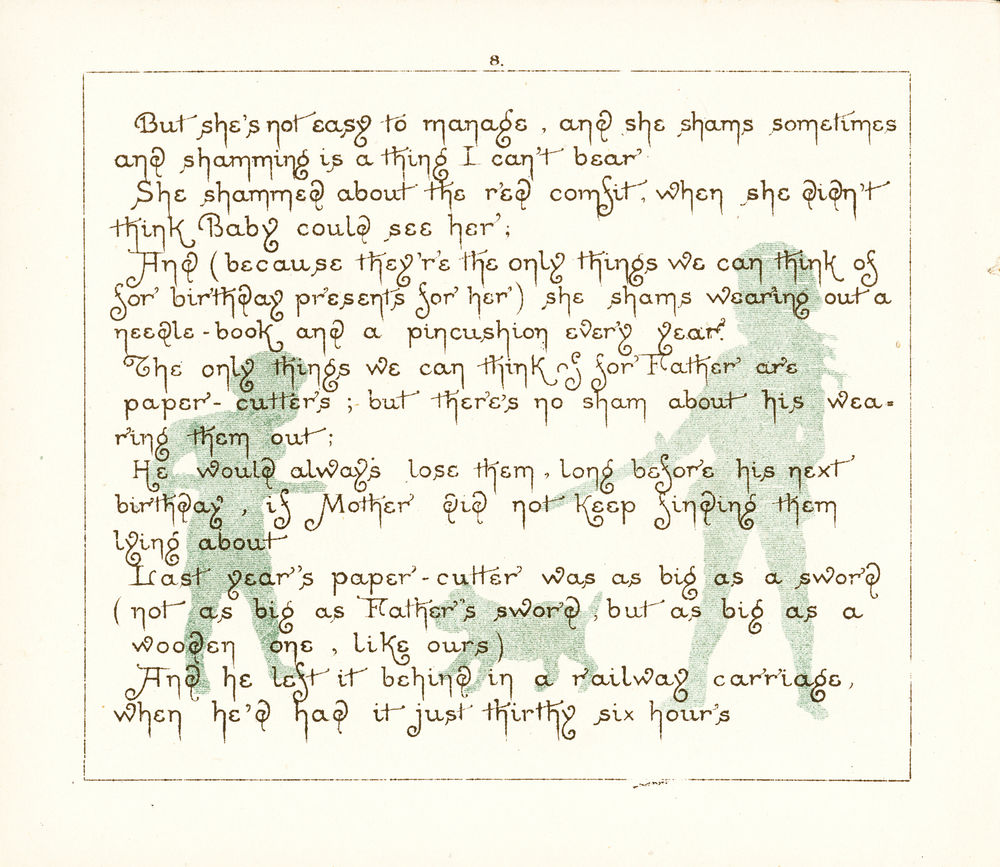 8.
But she's not easy to manage, and she shams sometimes
and shamming is a thing I can't bear
She shammed about the red comfit, when she didn't
think Baby could see her;
And (because they're the only things we can think of
for birthday presents for her) she shams wearing out a
needle-book and a pincushion every year.
The only things we can think of for Father are
paper-cutters; but there's no sham about his wea-
ring them out;
He would always lose them, long before his next
birthday, if Mother did not keep finding them
lying about
Last year's paper-cutter was as big as a sword
(not as big as Father's sword, but as big as a
wooden one, like ours)
And he left it behind in a railway carriage,
when he'd had it just thirthy six hours